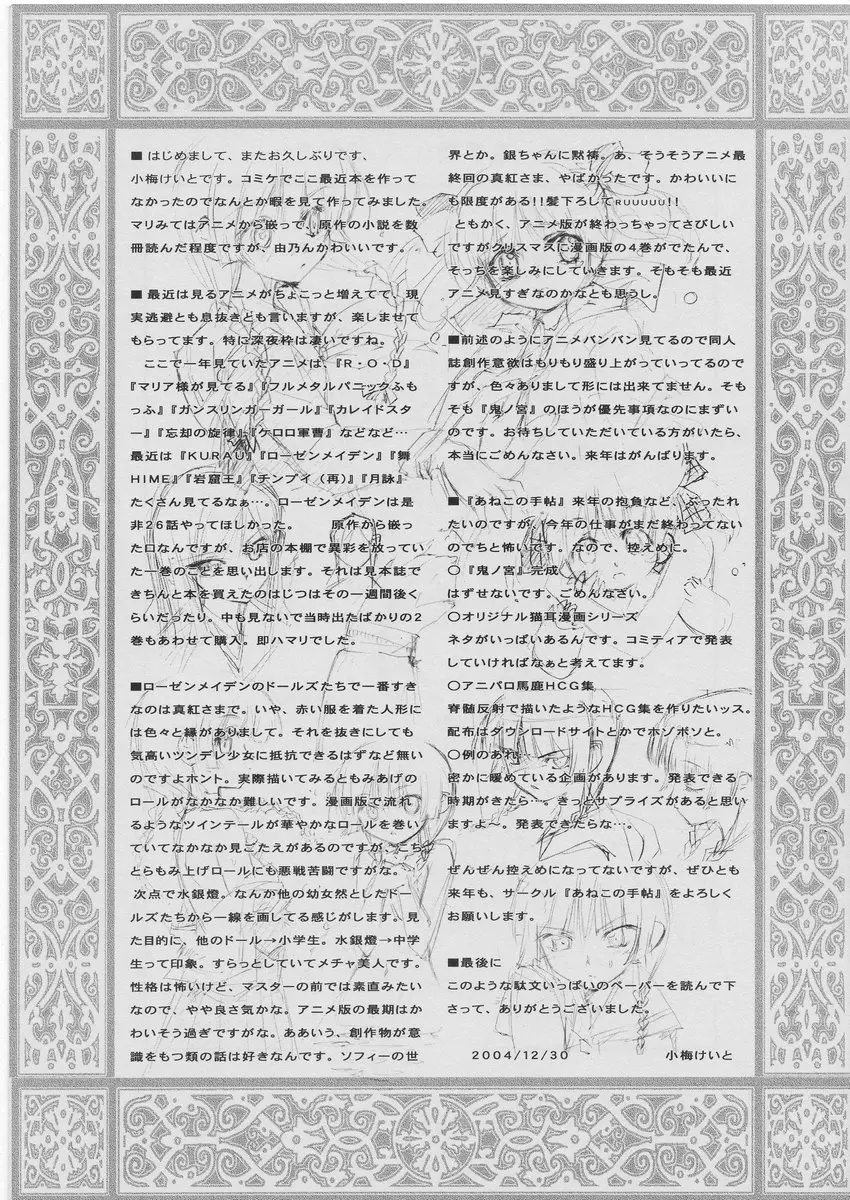 ■はじめまして、またお久しぶりです、
小梅けいとです。コミケでここ最近本を作って
なかったのでなんとか暇を見て作ってみました。
マリみてはアニメから嵌って、原作の小説を数
冊読んだ程度ですが、由乃んかわいいです。
■最近は見るアニメがちょこっと増えてて、現
実逃避とも息抜きとも言いますが、楽しませて
もらってます。特に深夜枠は凄いですね。
ここで一年見ていたアニメは、『R・O・D』
『マリア様が見てる』『フルメタルパニックふも
っふ』『ガンスリンガーガール』『カレイドスタ
ー』『忘却の旋律』『ケロロ軍曹』などなど…
最近は『KURAU』『ローゼンメイデン』『舞
HIME』『岩窟王』『チンプイ(再)』『月詠』
たくさん見てるなぁ…。ローゼンメイデンは是
非26話やってほしかった。　　原作から嵌っ
た口なんですが、お店の本棚で異彩を放ってい
た一巻のことを思い出します。それは見本誌で
きちんと本を買えたのはじつはその一週間後く
らいだったり。中も見ないで当時出たばかりの2
巻もあわせて購入。即ハマリでした。
■ローゼンメイデンのドールズたちで一番すき
なのは真紅さまで。いや、赤い服を着た人形に
は色々と縁がありまして。それを抜きにしても
気高いツンデレ少女に抵抗できるはずなど無い
のですよホント。実際描いてみるともみあげの
ロールがなかなか難しいです。漫画版で流れ
るようなツインテールが華やかなロールを巻い
ていてなかなか見ごたえがあるのですが、こち
とらもみ上げロールにも悪戦苦闘ですがな。
次点で水銀燈。なんか他の幼女然としたドー
ルズたちから一線を画してる感じがします。見
た目的に、他のドール→小学生。水銀燈→中学
生って印象。すらっとしていてメチャ美人です。
性格は怖いけど、マスターの前では素直みたい
なので、やや良さ気かな。アニメ版の最期はか
わいそう過ぎですがな。ああいう、創作物が意
識をもつ類の話は好きなんです。ソフィーの世
界とか。銀ちゃんに黙祷。あ、そうそうアニメ最
終回の真紅さま、やばかったです。かわいいに
も限度がある!!髪下ろしてRUUUUU!!
ともかく、アニメ版が終わっちゃってさびしい
ですがクリスマスに漫画版の4巻がでたんで、
そっちを楽しみにしていきます。そもそも最近
アニメ見すぎなのかなとも思うし。
■前述のようにアニメバンバン見てるので同人
誌創作意欲はもりもり盛り上がっていってるので
すが、色々ありまして形には出来てません。そも
そも『鬼ノ宮』のほうが優先事項なのにまずい
のです。お待ちしていただいている方がいたら、
本当にごめんなさい。来年はがんばります。
■『あねこの手帖』来年の抱負など、ぶったれ
たいのですが、今年の仕事がまだ終わってない
のでちと怖いです。なので、控えめに。
○『鬼ノ宮』完成
はずせないです。ごめんなさい。
○オリジナル猫耳漫画シリーズ
ネタがいっぱいあるんです。コミティアで発表
していければなぁと考えてます。
○アニパロ馬鹿HCG集
脊髄反射で描いたようなHCG集を作りたいッス。
配布はダウンロードサイトとかでホソボソと。
○例のあれ…
密かに暖めている企画があります。発表できる
時期がきたら…。きっとサプライズがあると思い
ますよ～。発表できたらな…。
ぜんぜん控えめになってないですが、ぜひとも
来年も、サークル『あねこの手帖』をよろしく
お願いします。
■最後に
このような駄文いっぱいのペーパーを読んで下
さって、ありがとうございました。
2004/12/30　小梅けいと